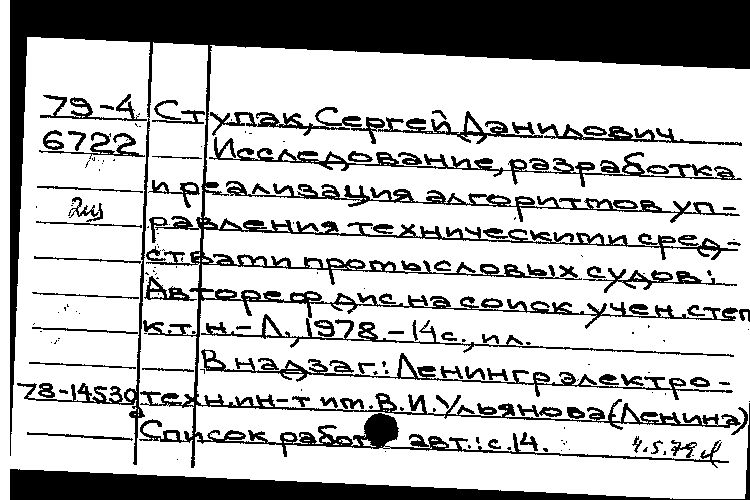 79-4 Ступак, Сергей Данилович.
6722 Исследование, разработка
и реализация алгоритмов уп-
2 равления техническими сред-
ствами промысловых судов:
Автореф дис. на соиск. учен. степ
к.т.н. - Л., 1978. - 14 с., ил.
В надзаг.: Ленингр. электро-
78-14530 техн. ин-т им. В.И. Ульянова (Ленина)
Список работ авт.: с. 14. 4.5.79